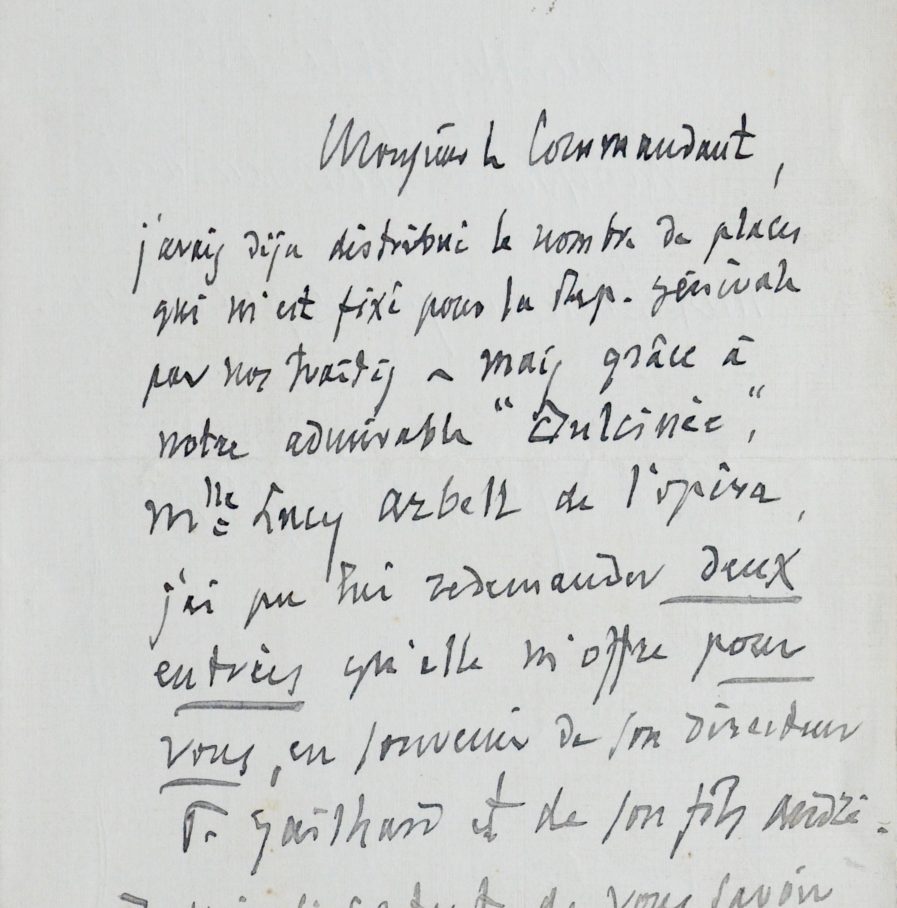 Monsieur le Commandant,
j'avais déjà distribué le nombre de places
qui m'est fixé pour la Rép. générale
par nos traités – mais grâce à
notre admirable "Dulcinée",
Mlle Lucy Arbell de l'opéra,
j'ai pu lui redemander deux
entrées qu'elle m'offre pour
vous, en souvenir de son directeur
P. Gailhard et de son fils André.
de vous savoir